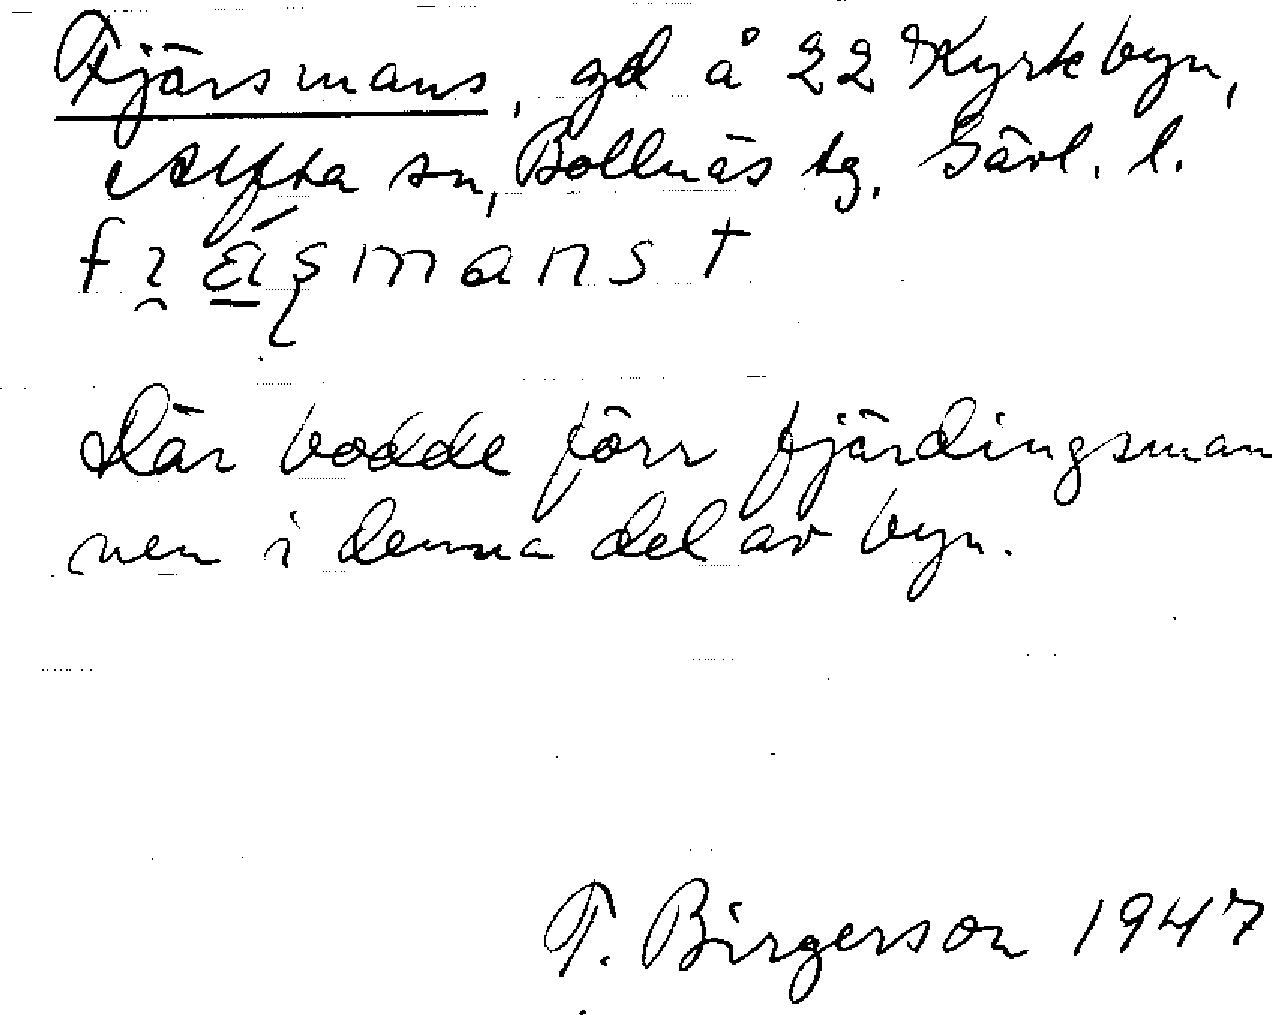 Fjärsmans, gd å 22 Kyrkbyn,
Alfta sn, Bollnäs tg. Gävl. l.
Där bodde förr fjärdingsman
nen i denna del av byn.
T. Birgerson 1947